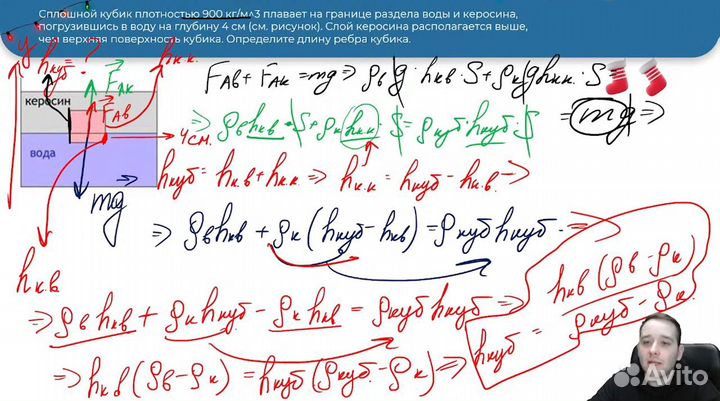 Сплошной кубик плотностью 900 кг/м^3 плавает на границе раздела воды и керосина,
погрузившись в воду на глубину 4 см (см. рисунок). Слой керосина располагается выше,
чем верхняя поверхность кубика. Определите длину ребра кубика.
y hкуб = ? hк.к.
Fак
Fав
керосин
вода
4 см.
mg
hк.в
Fав + Fак = mg ⇒ ρв g · hкв · S + ρк g hкк · S =
= mg ⇒
⇒ ρв hкв · S + ρк hкк · S = ρкуб · hкуб · S
hкуб = hк.в + hк.к ⇒ hк.к = hкуб - hк.в. →
⇒ ρв hкв + ρк (hкуб - hкв) = ρкуб hкуб ⇒
⇒ ρв hкв + ρк hкуб - ρк hкв = ρкуб hкуб ⇒
⇒ hкв (ρв - ρк) = hкуб (ρкуб - ρк) ⇒
hкуб = hкв (ρв - ρк) / ρкуб - ρк
Avito